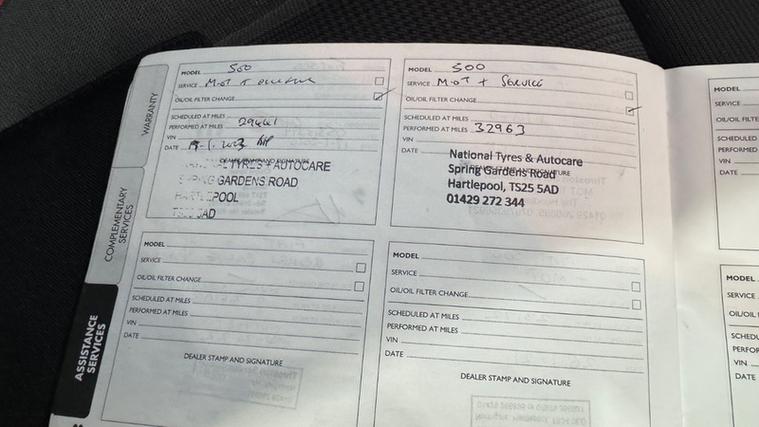 WARRANTY
COMPLEMENTARY SERVICES
ASSISTANCE SERVICES
MODEL 500
SERVICE MOT +
OIL/OIL FILTER CHANGE
SCHEDULED AT MILES
PERFORMED AT MILES 29441
VIN
DATE
DEALER STAMP AND SIGNATURE
TYRES + AUTOCARE
SPRING GARDENS ROAD
HARTLEPOOL
5AD
MODEL 500
SERVICE MOT + SERVICE
OIL/OIL FILTER CHANGE
SCHEDULED AT MILES
PERFORMED AT MILES 32963
VIN
DATE
National Tyres & Autocare
Spring Gardens Road
Hartlepool, TS25 5AD
01429 272 344
MODEL
SERVICE
OIL/OIL FILTER CHANGE
SCHEDULED AT MILES
PERFORMED AT MILES
VIN
DATE
DEALER STAMP AND SIGNATURE
MODEL
SERVICE
OIL/OIL FILTER CHANGE
SCHEDULED AT MILES
PERFORMED AT MILES
VIN
DATE
DEALER STAMP AND SIGNATURE
MODEL
SERVICE
OIL/OIL FILTE
SCHEDULED
PERFORMED
VIN
DATE
MODEL
SERVICE
OIL/OIL
SCHEDU
PERFOR
VIN
DATE